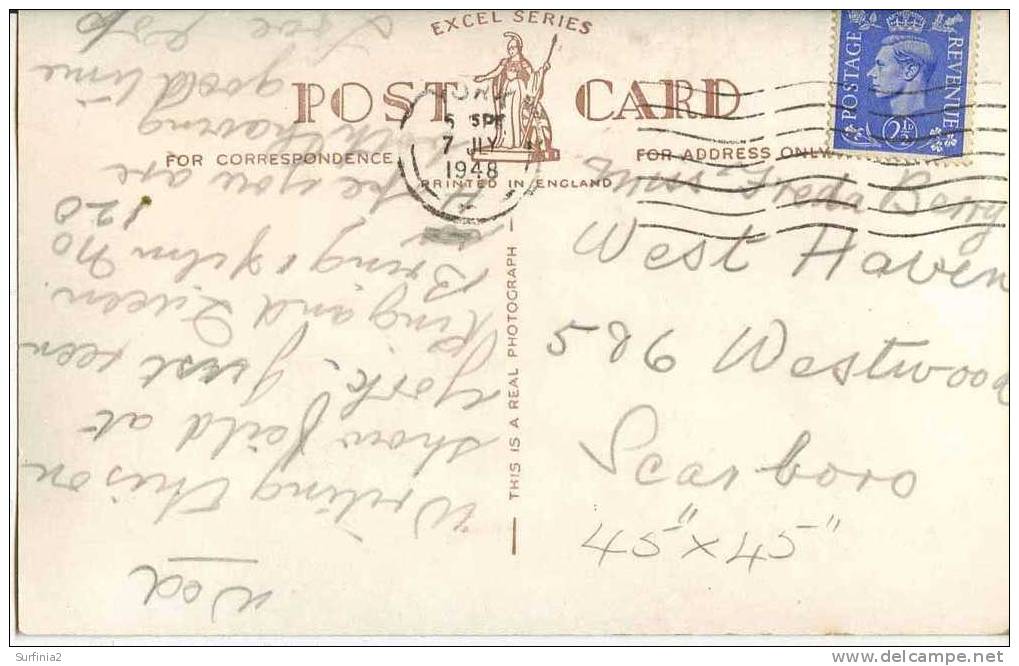 EXCEL SERIES
POST CARD
FOR CORRESPONDENCE
FOR ADDRESS ONLY
PRINTED IN ENGLAND
THIS IS A REAL PHOTOGRAPH
POSTAGE
REVENUE
2½D
5 15 PM
7 JLY
1948
Miss Freda Berry
West Haven
586 Westwood
Scarboro
45" x 45"
Wed
Writing this on
show feild at
York. Just seen
King and Queen
Bring 1 film No
120
Hope you are
both having
good time
Love
Surfinia2
www.delcampe.net